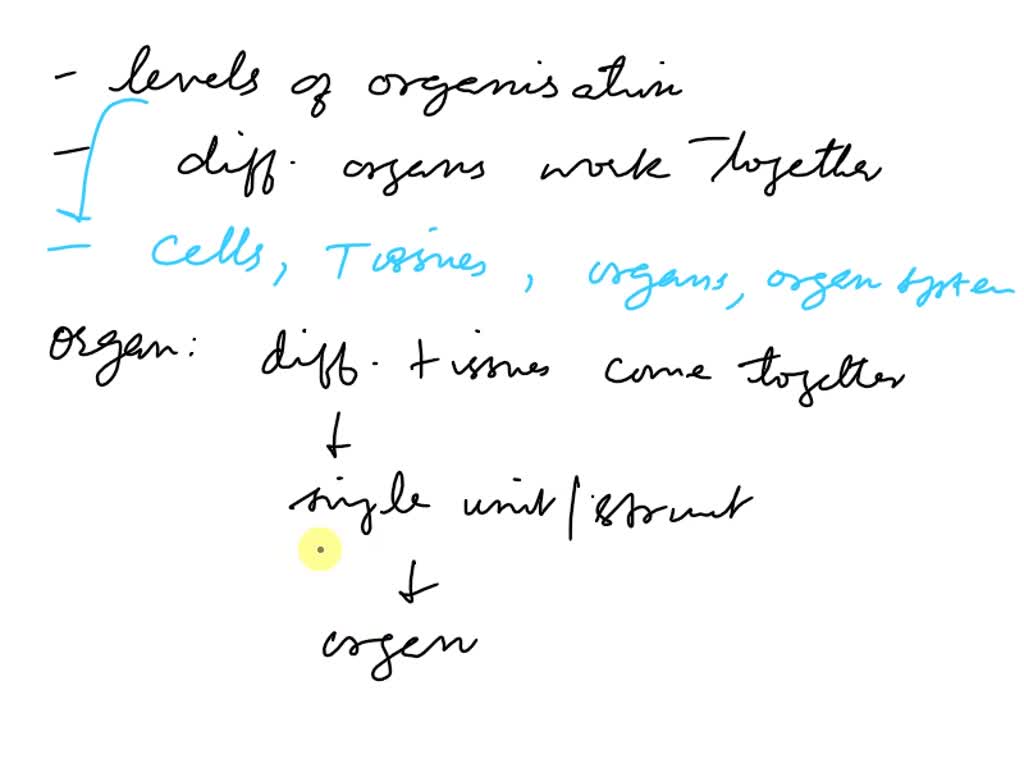 - levels of organisation
- diff. organs work together
- cells, Tissues, organs, organ system
organ: diff. tissues come together
single unit / struct
organ